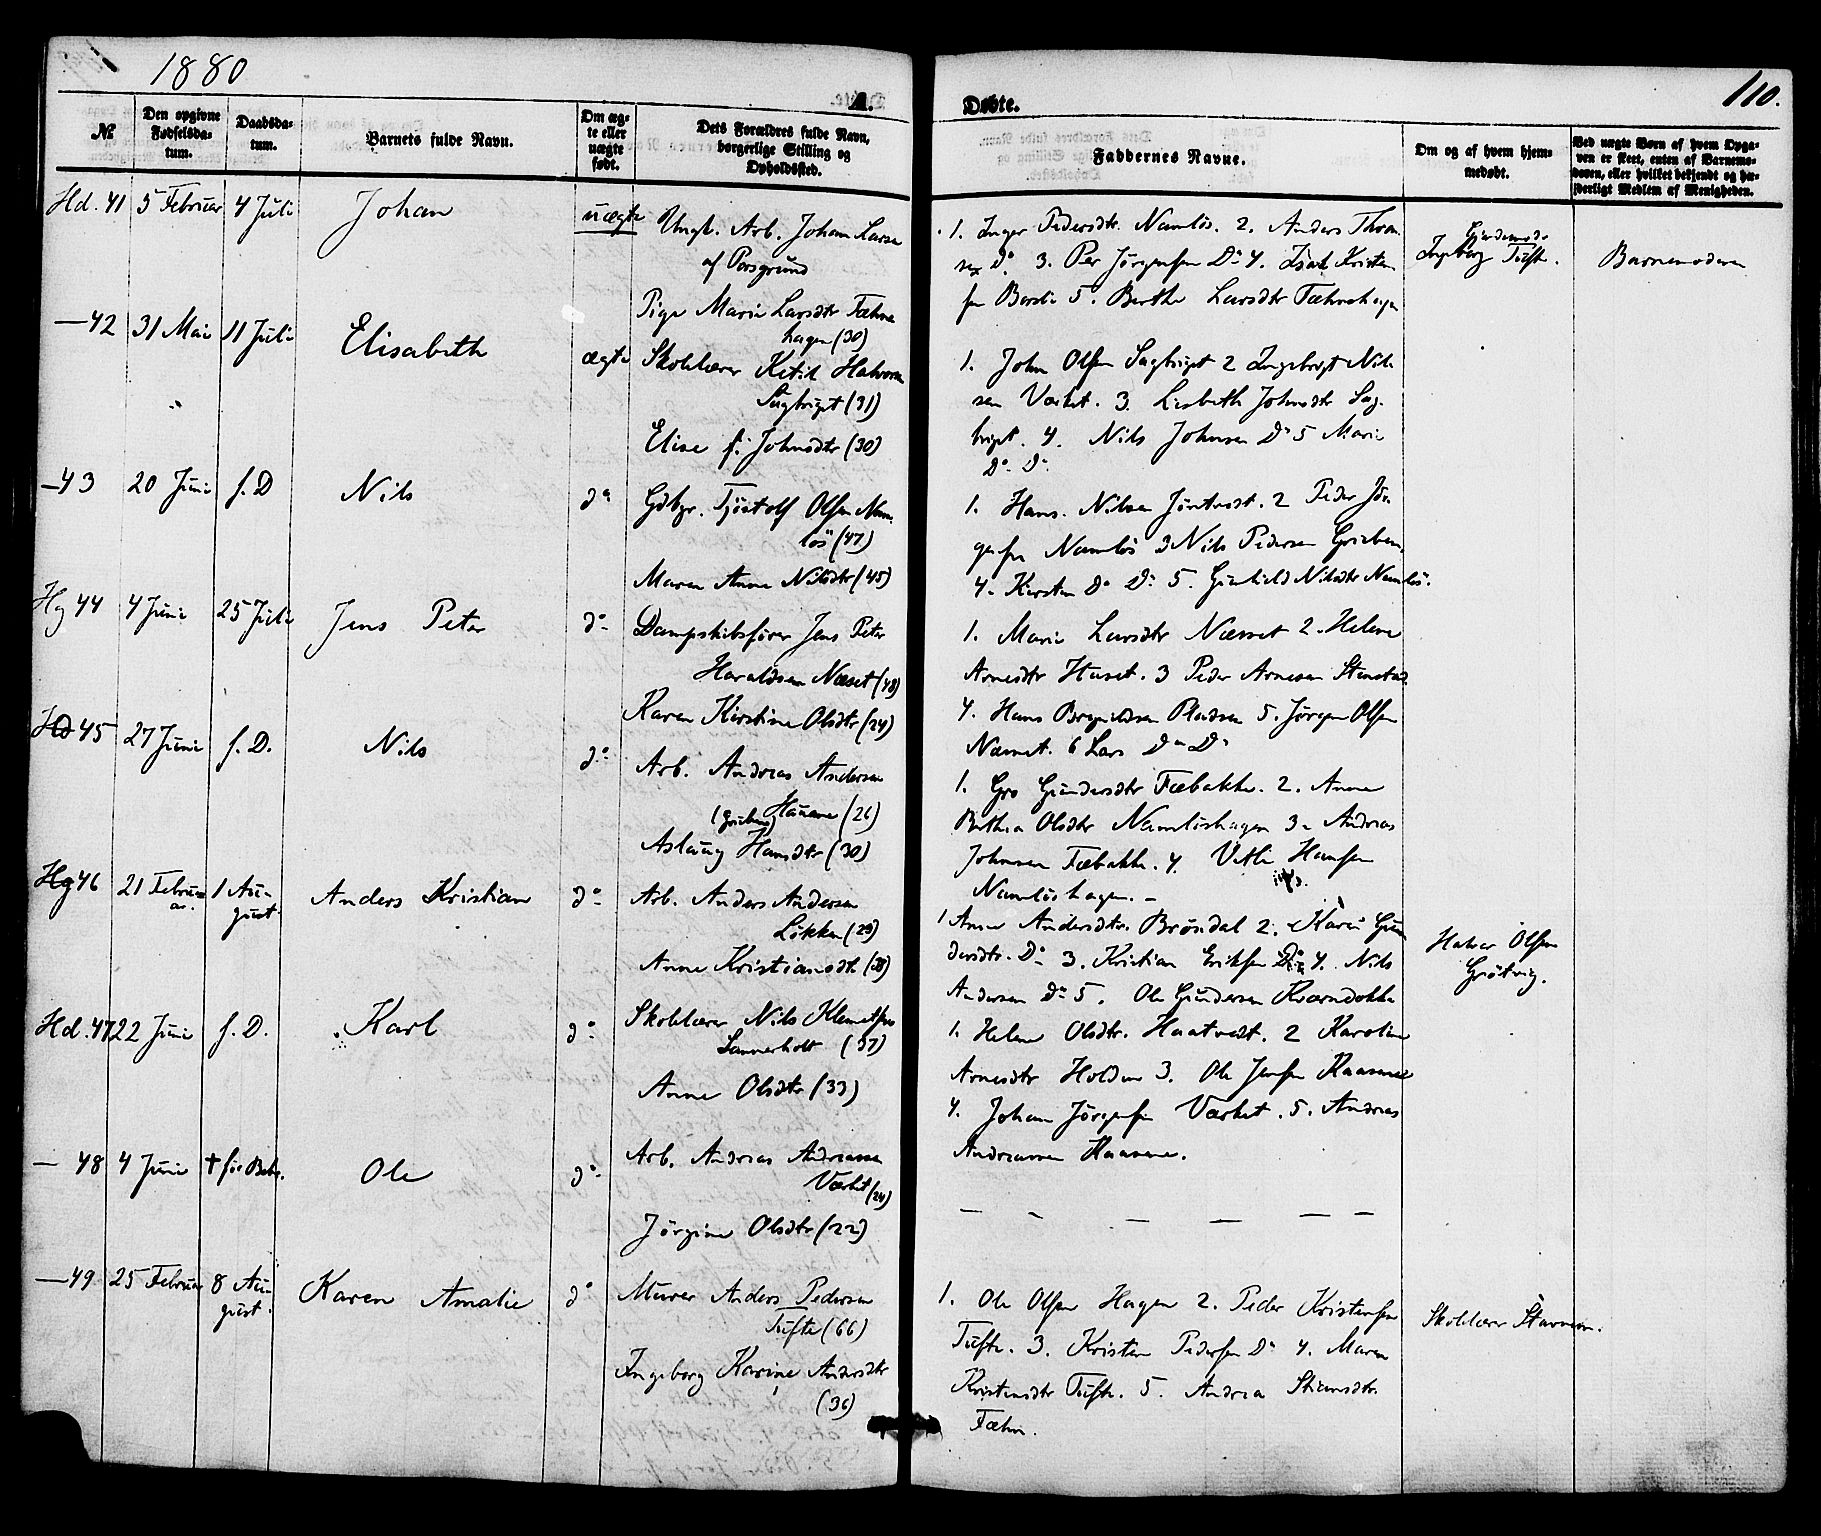 1880
A.
Døbte.
110.
№
Den opgivne Fødselsdatum.
Daabsdatum.
Barnets fulde Navn.
Om ægte eller uægte født.
Dets Forældres fulde Navn, borgerlige Stilling og Opholdssted.
Faddernes Navne.
Om og af hvem hjemmedøbt.
Ved uægte Børn af hvem Opgaven er skeet, enten af Barnemoderen, eller hvilket bekjendt og hæderligt Medlem af Menigheden.
Hd. 41 5 Februar 4 Juli Johan uægte
Ungk. Arb. Johan Larsen
af Porsgrund
Pige Marie Larsdtr Fæhns
hagen (30)
1. Inger Pedersdtr. Namløs. 2. Anders Thom
sen Do. 3. Per Jørgensen Do 4. Isak Kristen
sen 5. Berthe Larsdtr Fæhnshagen
Gjordemod.
Ingeborg Tufte.
Barnemoderen
— 42 31 Mai 11 Juli Elisabeth ægte
Skolelærer Ketil Halvorsen
Sagbriget (31)
Elise f. Johnsdtr (30)
1. John Olsen Sagbriget 2 Ingebrigt Nil
sen Værket. 3. Lisbeth Johnsdtr Sag
briget. 4. Nils Johnsen Do 5 Marie
Do. Do.
— 43 20 Juni s. D Nils do
Gdbgr. Tjøstolf Olsen Nam
løs (47)
Maren Anne Nilsdtr (45)
1. Hans Nilsen Jøntvedt. 2 Peder Jør
gensen Namløs 3 Nils Pedersen
4. Kirsten Do Do 5. Gunhild Nilsdtr Namløs.
Hg 44 4 Juni 25 Juli Jens Peter do
Dampskibsfører Jens Peter
Haraldsen Næset (48)
Karen Kirstine Olsdtr (24)
1. Marie Larsdtr Næset 2. Helene
Arnesdtr Huset. 3 Peder Arnesen
4. Hans Pladsen 5. Jørgen Olsen
Næset. 6 Lars Do Do
Hd 45 27 Juni s. D. Nils do
Arb. Andreas Andersen
Hauane (26)
Aslaug Hansdtr (30)
1. Gro Gundersdtr Fæbakke. 2. Anne
Berthea Olsdtr Namløshagen 3. Andreas
Johnsen Fæbakke. 4. Vetle Hansen
Namløshagen. —
Hg 46 21 Februar 1 August Anders Kristian do
Arb. Anders Andersen
Løkken (29)
Anne Kristiansdtr (28)
1 Anne Andersdtr. Brøndal 2. Karen Gun
dersdtr. Do 3. Kristian Eriksen Do 4. Nils
Andersen Do 5. Ole Gundersen Kværndokka
Halvor Olsen
Grøtvig.
Hd. 47 22 Juni s. D. Karl do
Skolelærer Nils Klemetsen
Sannerholt (37)
Anne Olsdtr (33)
1. Helene Olsdtr. Haatvedt. 2 Karoline
Arnesdtr Holden 3. Ole Jensen Kaasene
4. Johan Jørgensen Værket. 5. Andreas
Andreassen Kaasene.
— 48 4 Juni † før Daab. Ole do
Arb. Andreas Andreassen
Værket (24)
Jørgine Olsdtr (22)
— — — — — —
— 49 25 Februar 8 August Karen Amalie do
Murer Anders Pedersen
Tufte (66)
Ingeborg Karine Andersdtr
(36)
1. Ole Olsen Hagen 2. Peder Kristensen
Tufte. 3. Kristen Pedersen Do 4. Maren
Kristensdtr Tufte. 5. Andrea
Fæhn.
Skolelærer